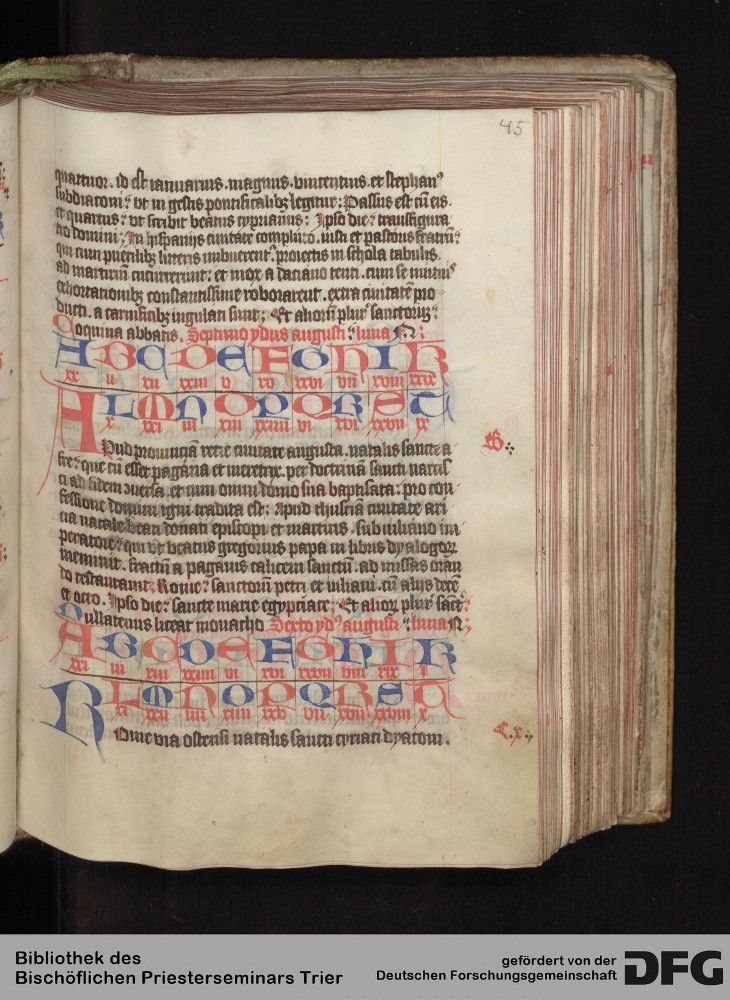 45
quattuor. id est ianuarius. magnus. vincentius. et stephan⁹
subdiaconi: vt in gestis pontificalibꝫ legitur: Passus est cū eis.
et quartus: vt scribit beatus cyprianus: Ipso die: transfigura
tio domini: In hispanijs ciuitate compluto. iusti et pastoris fratrū:
qui cum puerilibꝫ litteris imbuerent᷑. proiectis in schola tabulis.
ad martiriū cucurrerunt: et mox a daciano tenti. cum se mutuis
exhortationibꝫ constantissime roborarent. extra ciuitatē pro
ducti. a carnificibꝫ iugulati sunt: Et alioꝝ plur⁹ sanctorū:
Coquina abbatis. Septimo ydus augusti: luna N:
A B C D E F G H I K
xx i xii xxiii v xv xxvi vii xviii xxix
L M N O P Q R S T
x xxi iii xiii xxiiii vi xvi xxvii ix
B:
Apud prouinciā recie ciuitate augusta. natalis sancte a
fre: que cū esset pagana et meretrix. per doctrinā sancti narcis
ci ad fidem ↄuersa. et cum omni domo sua baptisata: pro con
fessione domini igni tradita est: Apud thusciā ciuitate ari
cia natale beati donati episcopi et martiris. sub iuliano im
peratore: qui vt beatus gregorius papa in libris dyalogoꝝ
meminit. fractū a paganis calicem sanctū. ad missas oran
do restaurauit: Rome: sanctorū petri et iuliani. cū alijs decē
et octo. Ipso die: sancte marie egyptiace: Et alioꝝ plur⁹ sāct:
Nullatenus liceat monacho Sexto yd⁹ augusti: luna N:
A B C D E F G H I K
xxi iii xiii xxiiii vi xvi xxvii viii xix i
L M N O P Q R S T
xi xxii iiii xiiii xxv vii xvii xxviii x
L.x:
Rome via ostensi natalis sancti cyriaci dyaconi.
Bibliothek des
Bischöflichen Priesterseminars Trier
gefördert von der
Deutschen Forschungsgemeinschaft
DFG